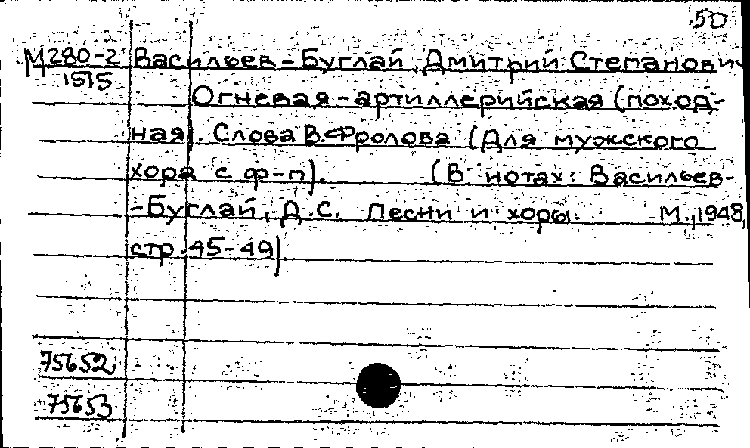 50
М280-2 Васильев-Буглай, Дмитрий Степанович
1515
Огневая-артиллерийская (поход-
ная). Слова В.Фролова (Для мужского
хора с ф-п). (В нотах: Васильев-
-Буглай, Д.С. Песни и хоры. М., 1948,
стр. 45-49)
75652
75653